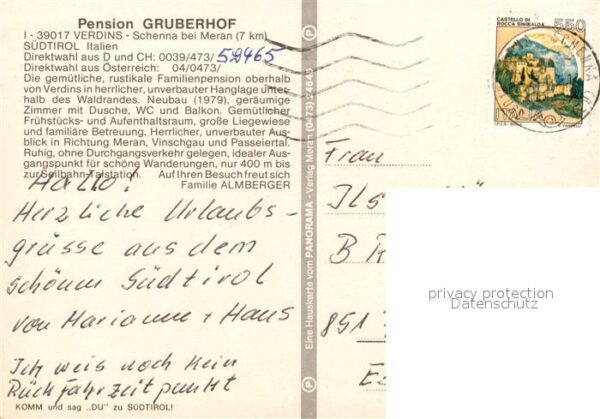 Pension GRUBERHOF
I - 39017 VERDINS - Schenna bei Meran (7 km)
SÜDTIROL Italien
Direktwahl aus D und CH: 0039/473/ 52465
Direktwahl aus Österreich: 04/0473/
Die gemütliche, rustikale Familienpension oberhalb
von Verdins in herrlicher, unverbauter Hanglage unter-
halb des Waldrandes. Neubau (1979), geräumige
Zimmer mit Dusche, WC und Balkon. Gemütlicher
Frühstücks- und Aufenthaltsraum, große Liegewiese
und familiäre Betreuung. Herrlicher, unverbauter Aus-
blick in Richtung Meran, Vinschgau und Passeiertal.
Ruhig, ohne Durchgangsverkehr gelegen, idealer Aus-
gangspunkt für schöne Wanderungen, nur 400 m bis
zur Seilbahn-Talstation. Auf Ihren Besuch freut sich
Familie ALMBERGER
Hallo!
Herzliche Urlaubs-
grüsse aus dem
schönen Südtirol
von Marianne + Hans
Ich weis noch kein
Rückfahrzeitpunkt
KOMM und sag "DU" zu SÜDTIROL!
Eine Hauskarte vom PANORAMA - Verlag Meran (0473) 24646
CASTELLO DI
ROCCA SINIBALDA
550
ITALIA
Frau
Ils
B R
851
privacy protection
Datenschutz